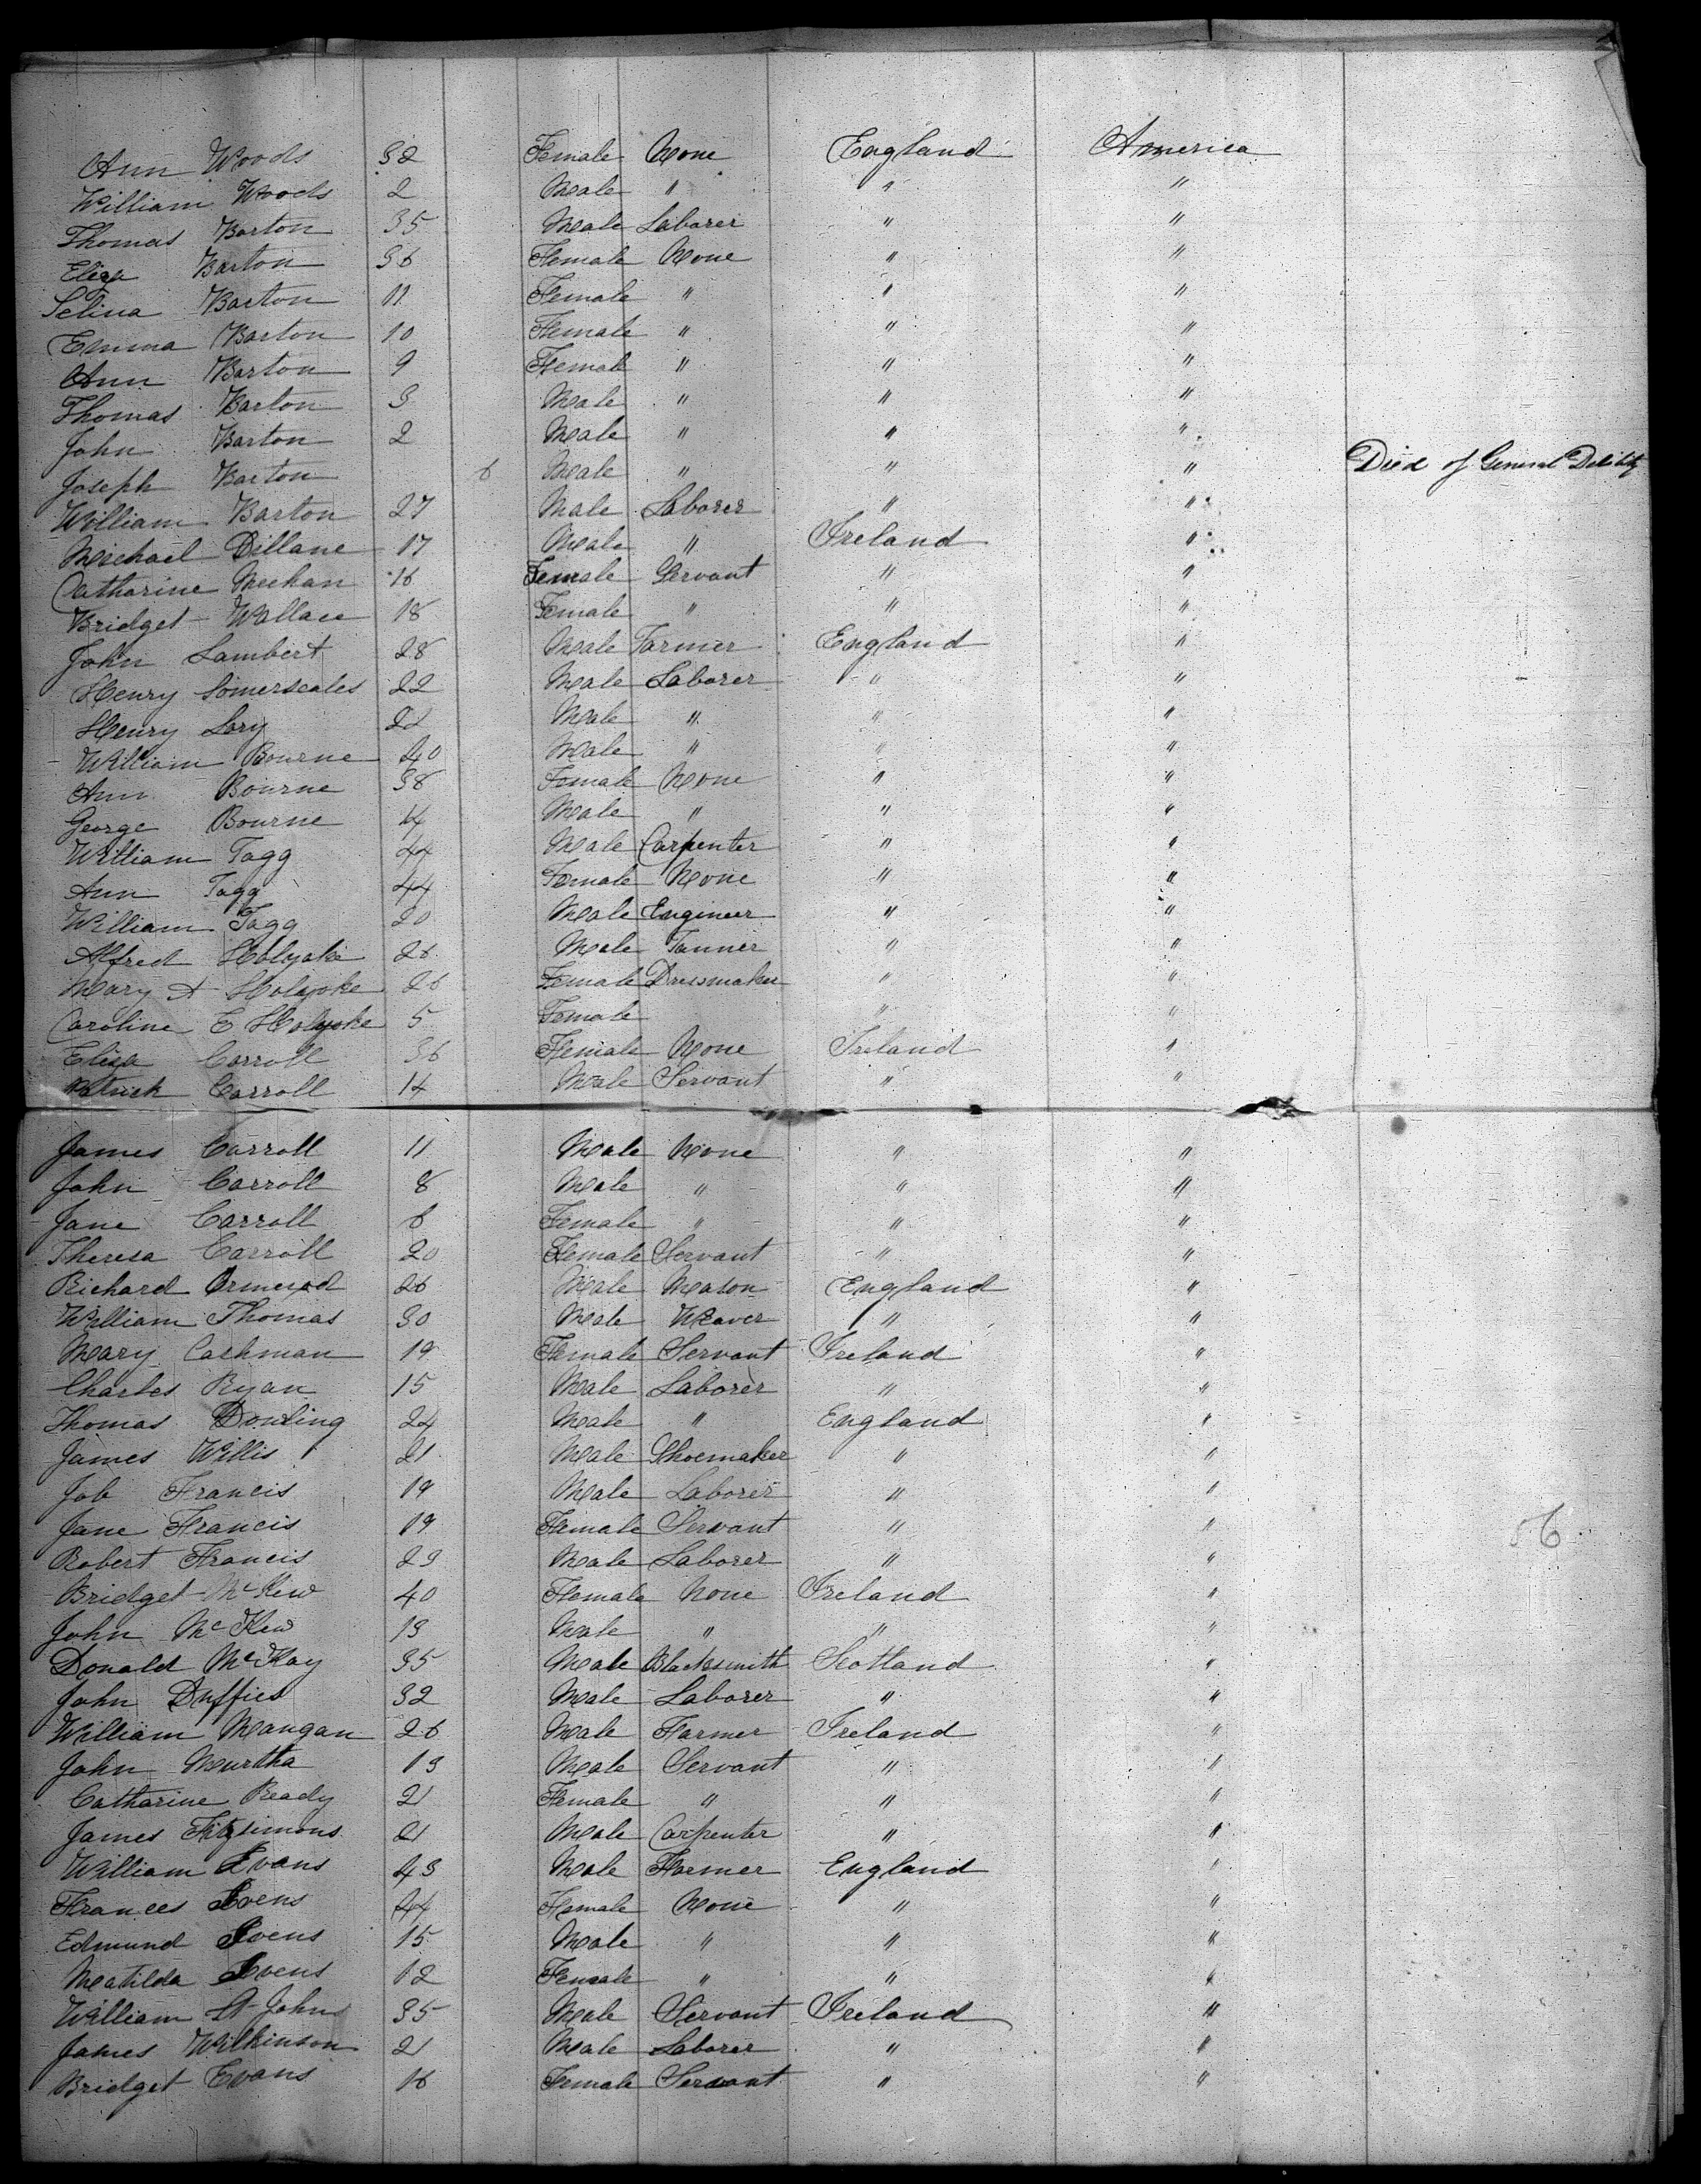 Ann Woods 32 Female None England America
William Woods 2 Male " " "
Thomas Barton 35 Male Laborer " "
Eliza Barton 36 Female None " "
Selina Barton 11 Female " " "
Emma Barton 10 Female " " "
Ann Barton 9 Female " " "
Thomas Barton 3 Male " " "
John Barton 2 Male " " "
Joseph Barton 6 Male " " " Died of General Debility
William Barton 27 Male Laborer " "
Michael Dillane 17 Male " Ireland "
Catharine Meehan 16 Female Servant " "
Bridget Wallace 18 Female " " "
John Lambert 28 Male Farmer England "
Henry Somerscales 22 Male Laborer " "
Henry Lory Male " " "
William Bourne 40 Male " " "
Ann Bourne 38 Female None " "
George Bourne 14 Male " " "
William Tagg 44 Male Carpenter " "
Ann Tagg 44 Female None " "
William Tagg 20 Male Engineer " "
Alfred Holyoke 26 Male Tanner " "
Mary A Holyoke 26 Female Dressmaker " "
Caroline E Holyoke 5 Female " "
Eliza Carroll 36 Female None Ireland "
Patrick Carroll 14 Male Servant " "
James Carroll 11 Male None " "
John Carroll 8 Male " " "
Jane Carroll 6 Female " " "
Theresa Carroll 20 Female Servant " "
Richard Ormerod 26 Male Mason England "
William Thomas 30 Male Weaver " "
Mary Cashman 19 Female Servant Ireland "
Charles Ryan 15 Male Laborer " "
Thomas Dowling 24 Male " England "
James Willis 21 Male Shoemaker " "
Job Francis 19 Male Laborer " "
Jane Francis 19 Female Servant " "
Robert Francis 23 Male Laborer " "
Bridget McKew 40 Female None Ireland "
John McKew 13 Male " " "
Donald McKay 35 Male Blacksmith Scotland "
John Duffies 32 Male Laborer " "
William Mangan 26 Male Farmer Ireland "
John Murtha 13 Male Servant " "
Catharine Ready 21 Female " " "
James Fitzsimons 21 Male Carpenter " "
William Ivans 43 Male Farmer England "
Frances Ivens 44 Female None " "
Edmund Ivens 15 Male " " "
Matilda Ivens 12 Female " " "
William St Johns 35 Male Servant Ireland "
James Wilkinson 21 Male Laborer " "
Bridget Evans 16 Female Servant " "
56